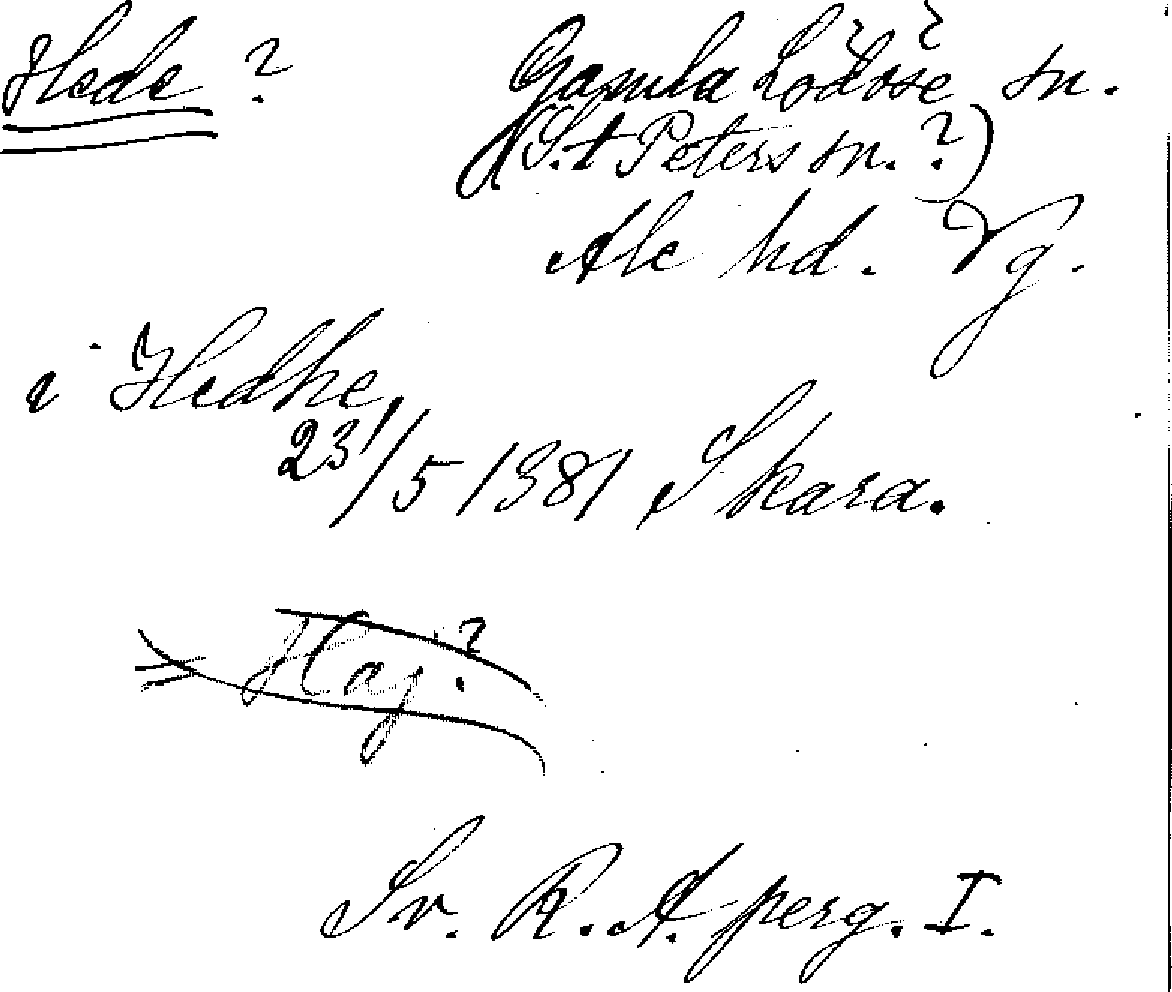 Hede ? Gamla Lödöse sn.
(S:t Peters sn. ?)
Ale hd. Vg.
i Hedhe,
23/5 1381 Skara.
= Haj?
Sv. R. A. perg. I.